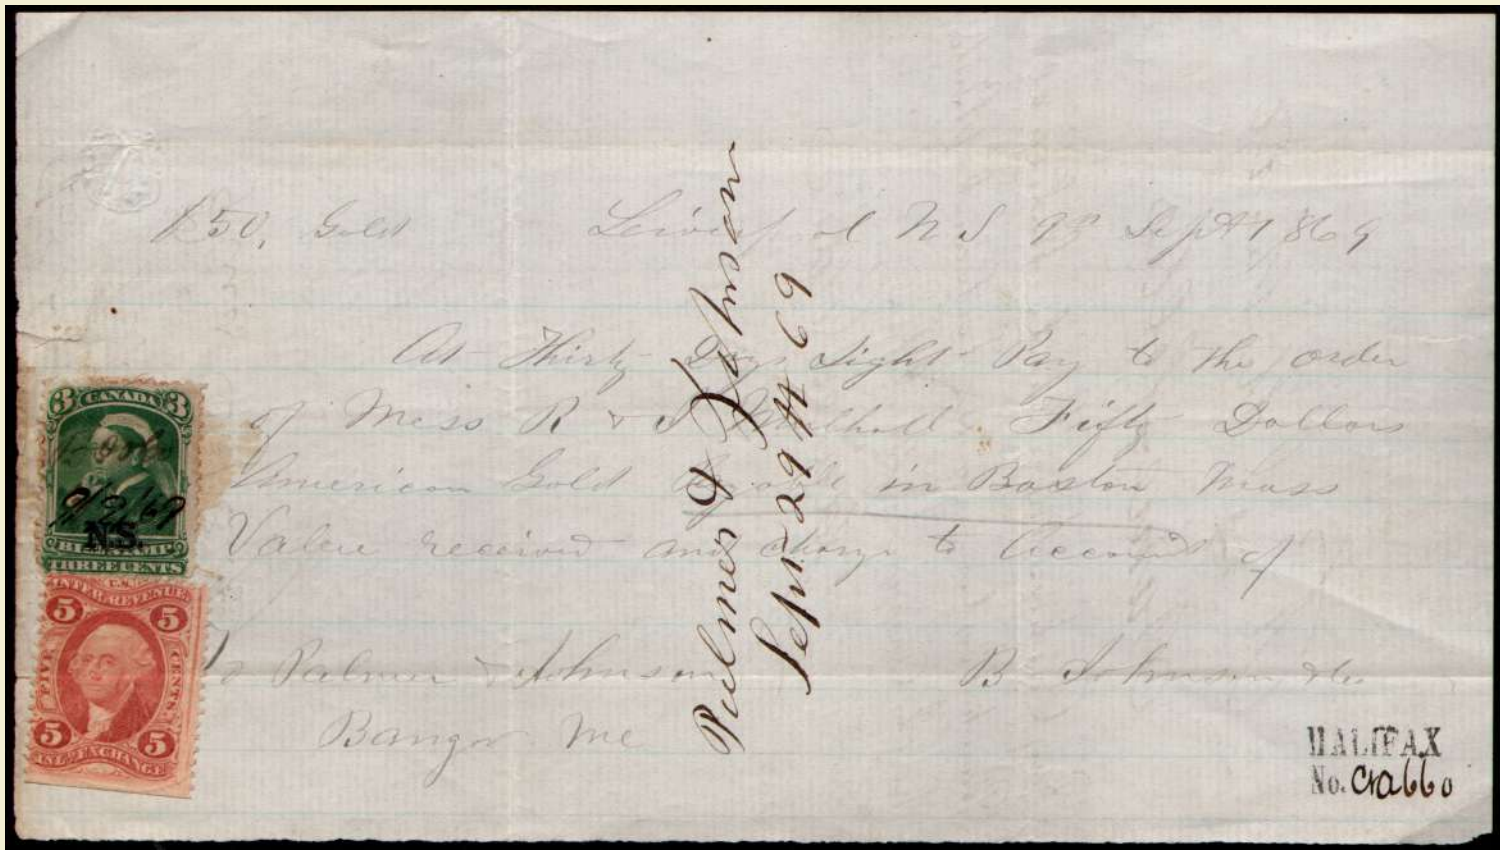 $50. Gold Liverpool N S 9th Sept 1869
At Thirty Days Sight Pay to the order
of Mess R & S Fifty Dollars
American Gold Payable in Boston Mass
Value received and charge to Account of
To Palmer & Johnson B Johnson & Co
Bangor Me
Palmer & Johnson
Sept 29th 69
3 CANADA 3
9/9/69
N.S.
BILL STAMP
THREE CENTS
U.S.
INTER. REVENUE
5 5
FIVE CENTS
5 5
INLAND EXCHANGE
HALIFAX
No.